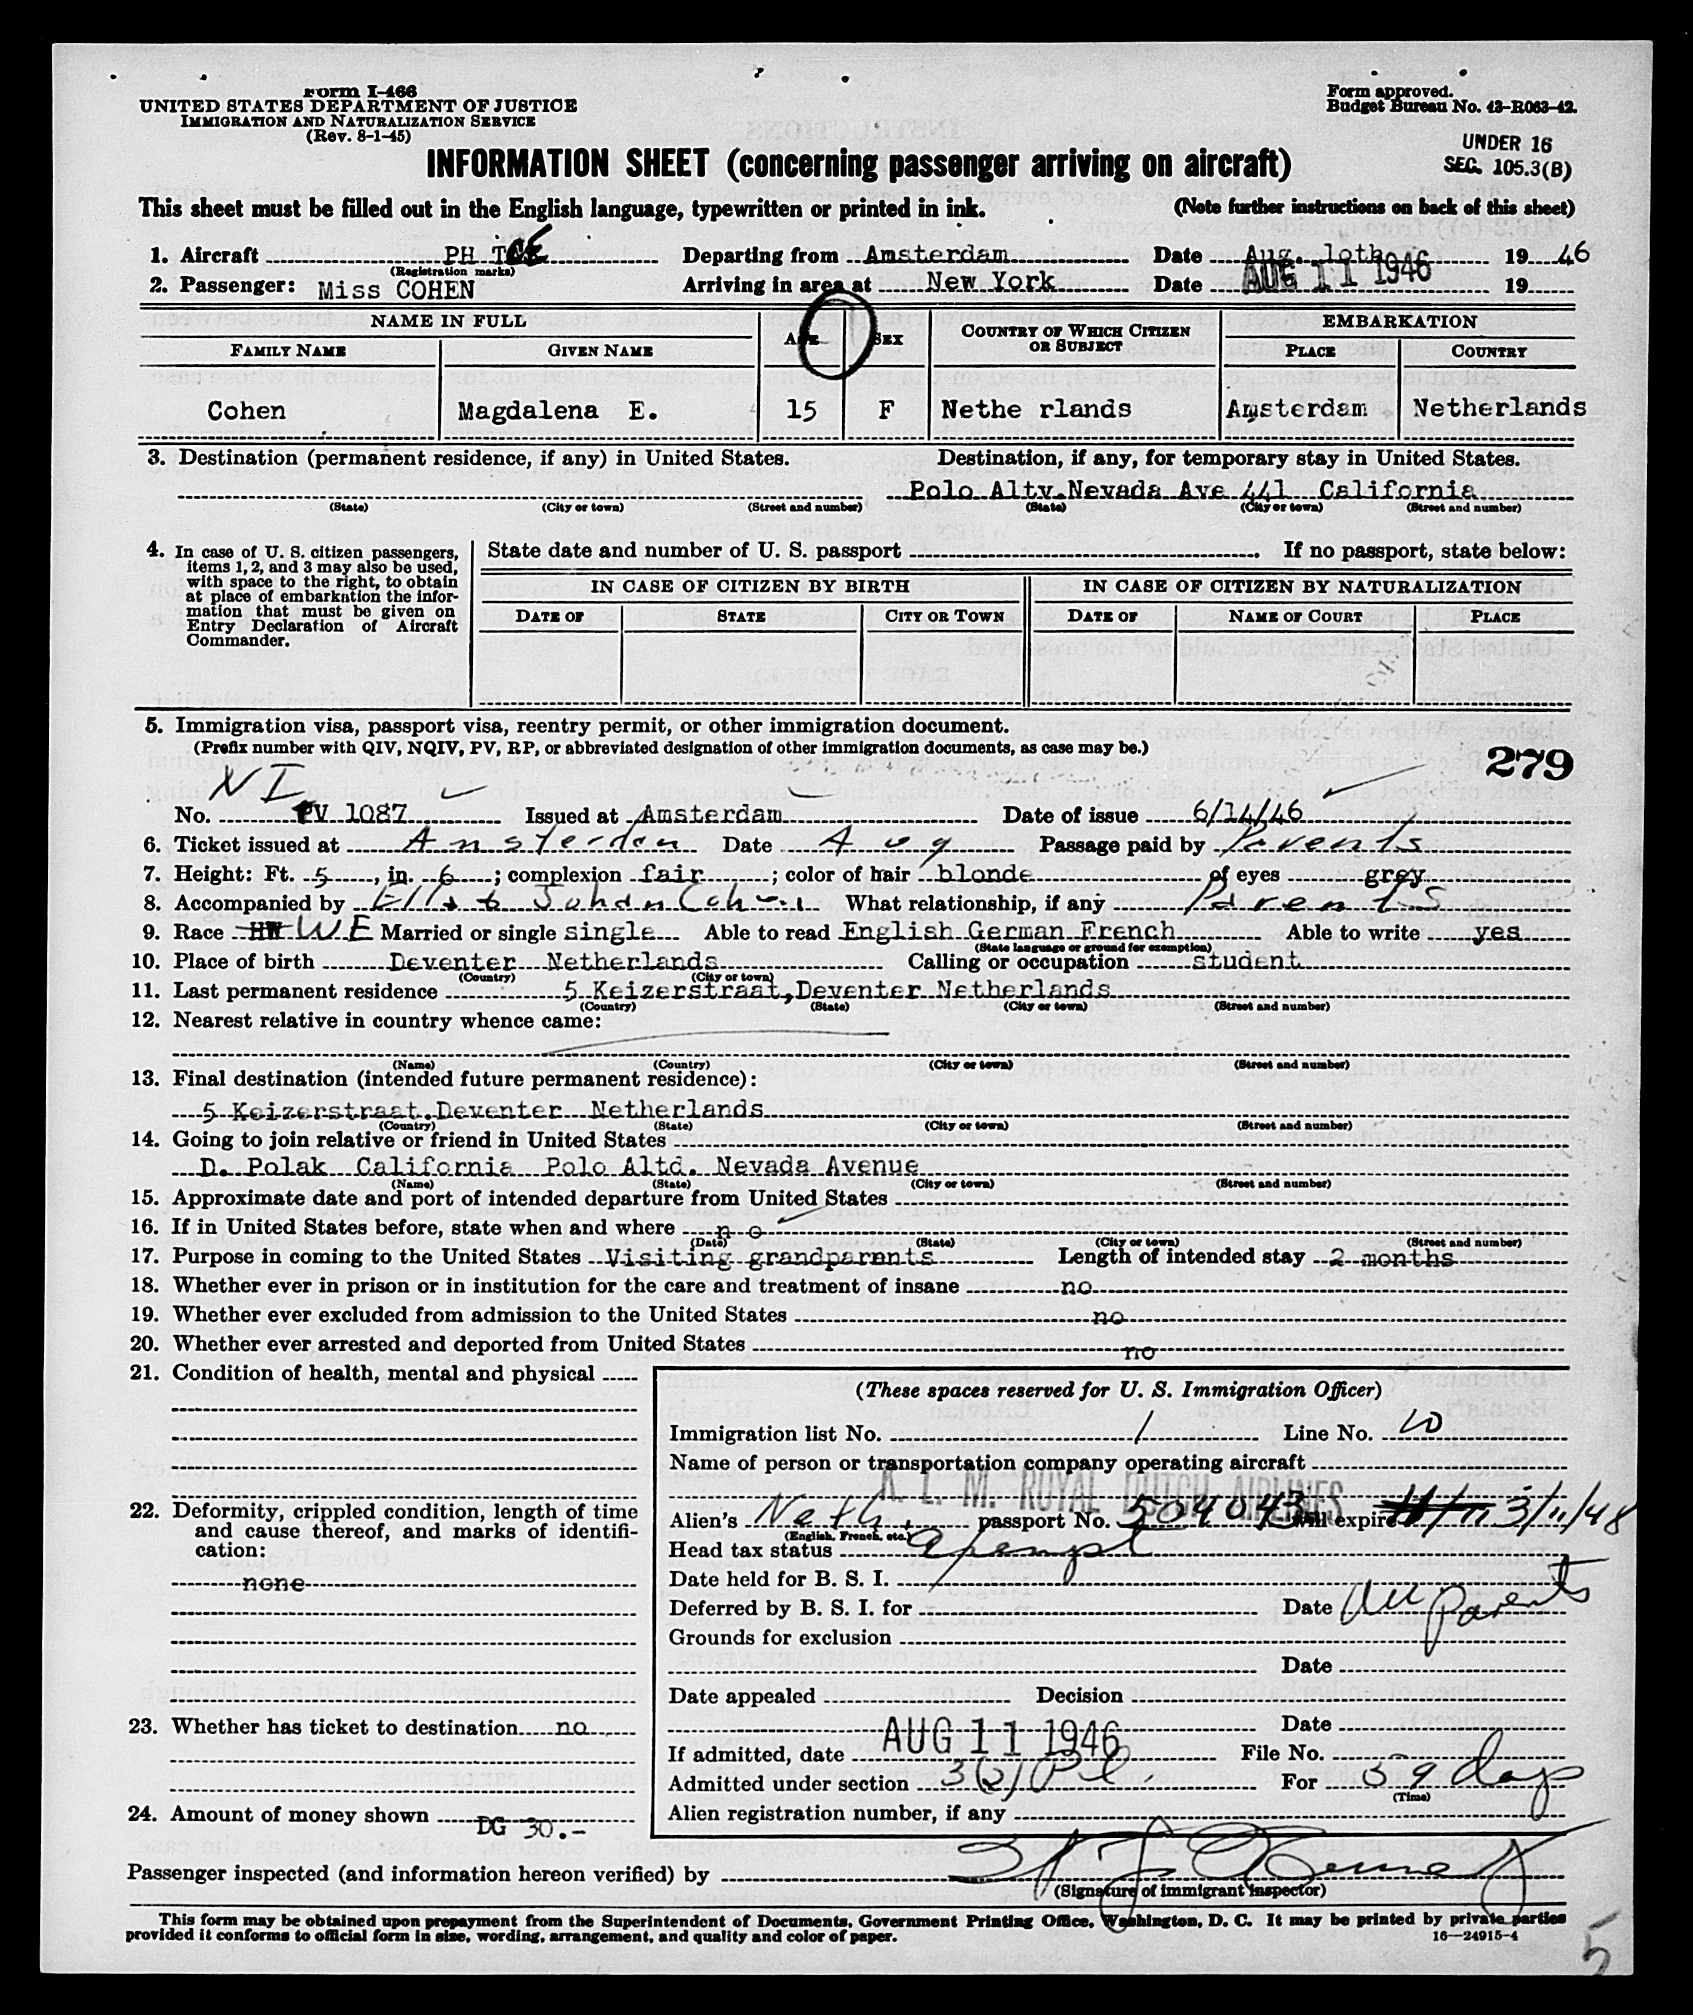 Form I-466
UNITED STATES DEPARTMENT OF JUSTICE
IMMIGRATION AND NATURALIZATION SERVICE
(Rev. 8-1-45)
Form approved.
Budget Bureau No. 43-R063-42.
UNDER 16
SEC. 105.3(B)
INFORMATION SHEET (concerning passenger arriving on aircraft)
This sheet must be filled out in the English language, typewritten or printed in ink. (Note further instructions on back of this sheet)
1. Aircraft PH TCE Departing from Amsterdam Date Aug. 10th 1946
(Registration marks)
2. Passenger: Miss COHEN Arriving in area at New York Date AUG 11 1946 19
NAME IN FULL AGE SEX COUNTRY OF WHICH CITIZEN OR SUBJECT EMBARKATION
FAMILY NAME GIVEN NAME PLACE COUNTRY
Cohen Magdalena E. 15 F Nethe rlands Amsterdam Netherlands
3. Destination (permanent residence, if any) in United States. Destination, if any, for temporary stay in United States.
Polo Alty.Nevada Ave 441 California
(State) (City or town) (Street and number) (State) (City or town) (Street and number)
4. In case of U. S. citizen passengers, items 1, 2, and 3 may also be used, with space to the right, to obtain at place of embarkation the information that must be given on Entry Declaration of Aircraft Commander.
State date and number of U. S. passport . If no passport, state below:
IN CASE OF CITIZEN BY BIRTH IN CASE OF CITIZEN BY NATURALIZATION
DATE OF STATE CITY OR TOWN DATE OF NAME OF COURT PLACE
5. Immigration visa, passport visa, reentry permit, or other immigration document.
(Prefix number with QIV, NQIV, PV, RP, or abbreviated designation of other immigration documents, as case may be.)
279
NI
No. PV 1087 Issued at Amsterdam Date of issue 6/14/46
6. Ticket issued at Amsterdam Date Aug Passage paid by Parents
7. Height: Ft. 5, in. 6; complexion fair; color of hair blonde of eyes grey
8. Accompanied by Johan Cohen What relationship, if any Parents
9. Race HW WE Married or single single Able to read English German French Able to write yes
(State language or ground for exemption)
10. Place of birth Deventer Netherlands Calling or occupation student
(Country) (City or town)
11. Last permanent residence 5 Keizerstraat,Deventer Netherlands
(Country) (State) (City or town) (Street and number)
12. Nearest relative in country whence came:
(Name) (Country) (City or town) (Street and number)
13. Final destination (intended future permanent residence):
5 Keizerstraat.Deventer Netherlands
(Country) (State) (City or town) (Street and number)
14. Going to join relative or friend in United States
D. Polak California Polo Altd. Nevada Avenue
(Name) (State) (City or town) (Street and number)
15. Approximate date and port of intended departure from United States
16. If in United States before, state when and where no
(Date) (State) (City or town) (Street and number)
17. Purpose in coming to the United States Visiting grandparents Length of intended stay 2 months
18. Whether ever in prison or in institution for the care and treatment of insane no
19. Whether ever excluded from admission to the United States no
20. Whether ever arrested and deported from United States no
21. Condition of health, mental and physical
22. Deformity, crippled condition, length of time and cause thereof, and marks of identification:
none
23. Whether has ticket to destination no
24. Amount of money shown DG 30.-
(These spaces reserved for U. S. Immigration Officer)
Immigration list No. 1 Line No. 10
Name of person or transportation company operating aircraft
K. L. M. ROYAL DUTCH AIRLINES
Alien's Neth. passport No. 504043 will expire 3/11/48
(English, French, etc.)
Head tax status exempt
Date held for B. S. I.
Deferred by B. S. I. for Date
All parents
Grounds for exclusion
Date
Date appealed Decision
Date
If admitted, date AUG 11 1946 File No.
Admitted under section 3(2) For 59 days
(Time)
Alien registration number, if any
Passenger inspected (and information hereon verified) by
(Signature of immigrant inspector)
This form may be obtained upon prepayment from the Superintendent of Documents, Government Printing Office, Washington, D. C. It may be printed by private parties
provided it conforms to official form in size, wording, arrangement, and quality and color of paper. 16—24915-4
5